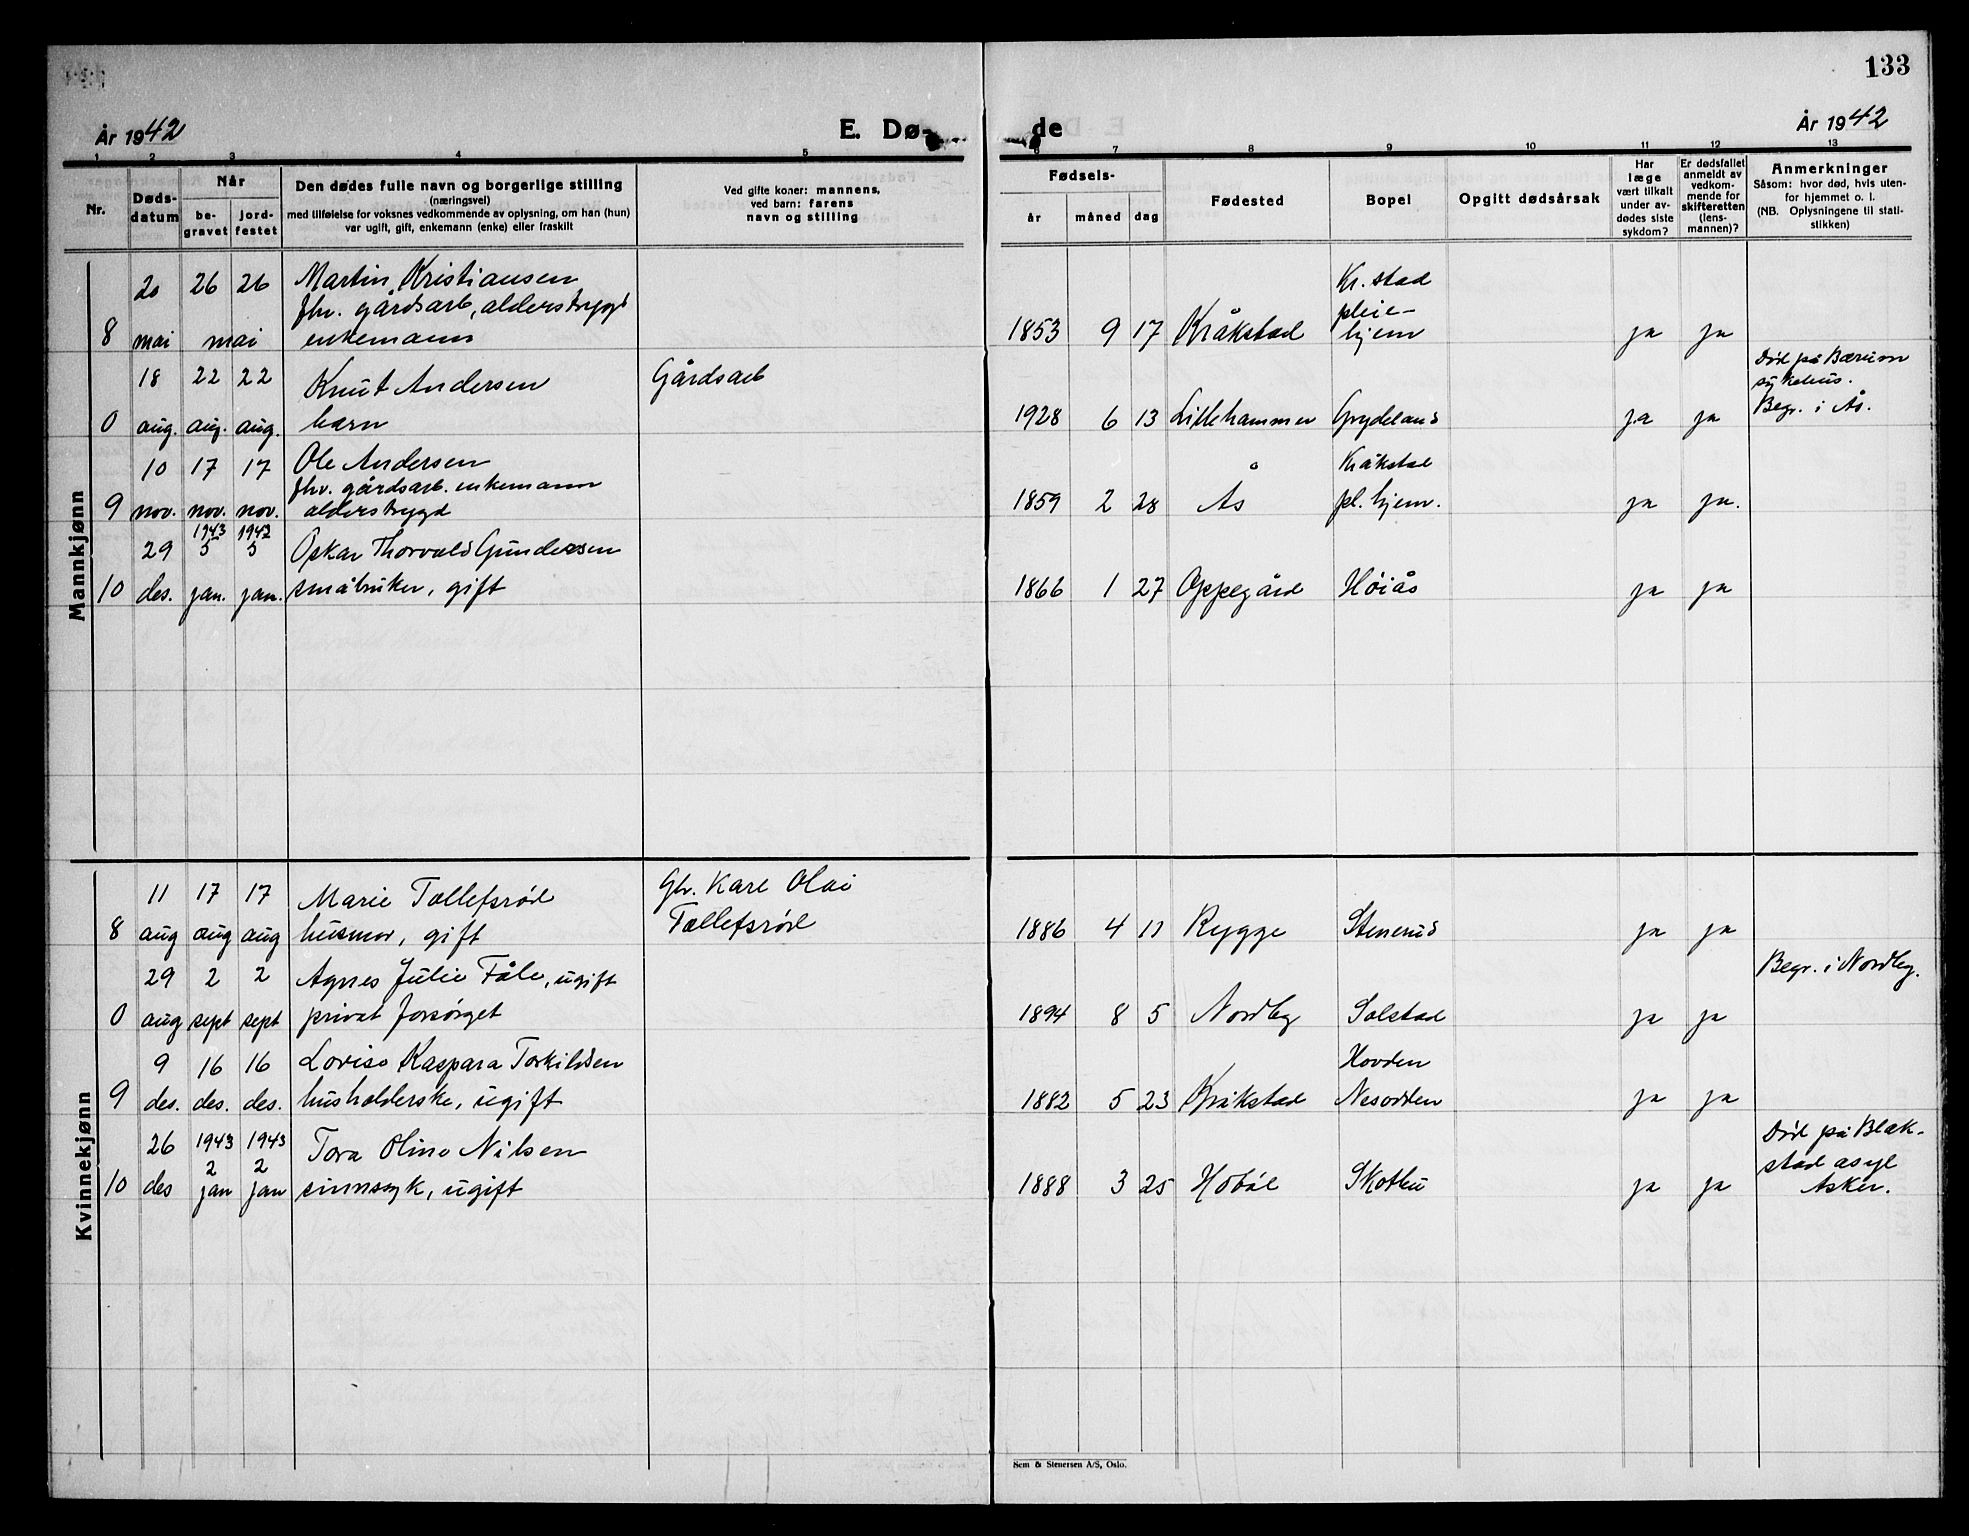 133
År 1942
E. Dø-
de
År 1942
1 2 3 4 5
6 7 8 9 10 11 12 13
Nr.
Døds-
datum
Når
be-
gravet
jord-
festet
Den dødes fulle navn og borgerlige stilling
(næringsvei)
med tilføielse for voksnes vedkommende av oplysning, om han (hun)
var ugift, gift, enkemann (enke) eller fraskilt
Ved gifte koner: mannens,
ved barn: farens
navn og stilling
Fødsels-
år måned dag
Fødested
Bopel
Opgitt dødsårsak
Har
læge
vært tilkalt
under av-
dødes siste
sykdom?
Er dødsfallet
anmeldt av
vedkom-
mende for
skifteretten
(lens-
mannen)?
Anmerkninger
Såsom: hvor død, hvis uten-
for hjemmet o. l.
(NB. Oplysningene til stati-
stikken)
Mannkjønn
20 26 26 Martin Kristiansen Kr.stad
fhv. gårdsarb, alderstrygd pleie-
8 mai mai enkemann 1853 9 17 Kråkstad hjem ja ja
18 22 22 Knut Andersen Gårdsarb Død på Bærum
sykehus.
0 aug. aug. aug. barn 1928 6 13 Lillehammer Grydeland ja ja Begr. i Ås.
10 17 17 Ole Andersen Kråkstad
fhv. gårdsarb. enkemann
9 nov. nov. nov. alderstrygd 1859 2 28 Ås pl. hjem. ja ja.
1943 1943
29 5 5 Oskar Thorvald Gundersen
10 des. jan. jan. småbruker, gift 1866 1 27 Oppegård Høiås ja ja
Kvinnekjønn
11 17 17 Marie Tollefsrød Gbr. Karl Olai
8 aug aug aug husmor, gift Tollefsrød 1886 4 11 Rygge Stenerud ja ja
29 2 2 Agnes Julie Fåle, ugift Begr. i Nordby.
0 aug sept sept privat forsørget 1894 8 5 Nordby Solstad ja ja
9 16 16 Lovise Kaspara Torkildsen Hovden
9 des. des. des. husholderske, ugift 1882 5 23 Kråkstad Nesodden ja ja
26 1943 1943 Tora Oline Nilsen Død på Blak-
2 2 stad asyl
10 des jan jan sinnssyk, ugift 1888 3 25 Hobøl Skotbu ja ja Asker.
Sem & Stenersen A/S, Oslo.